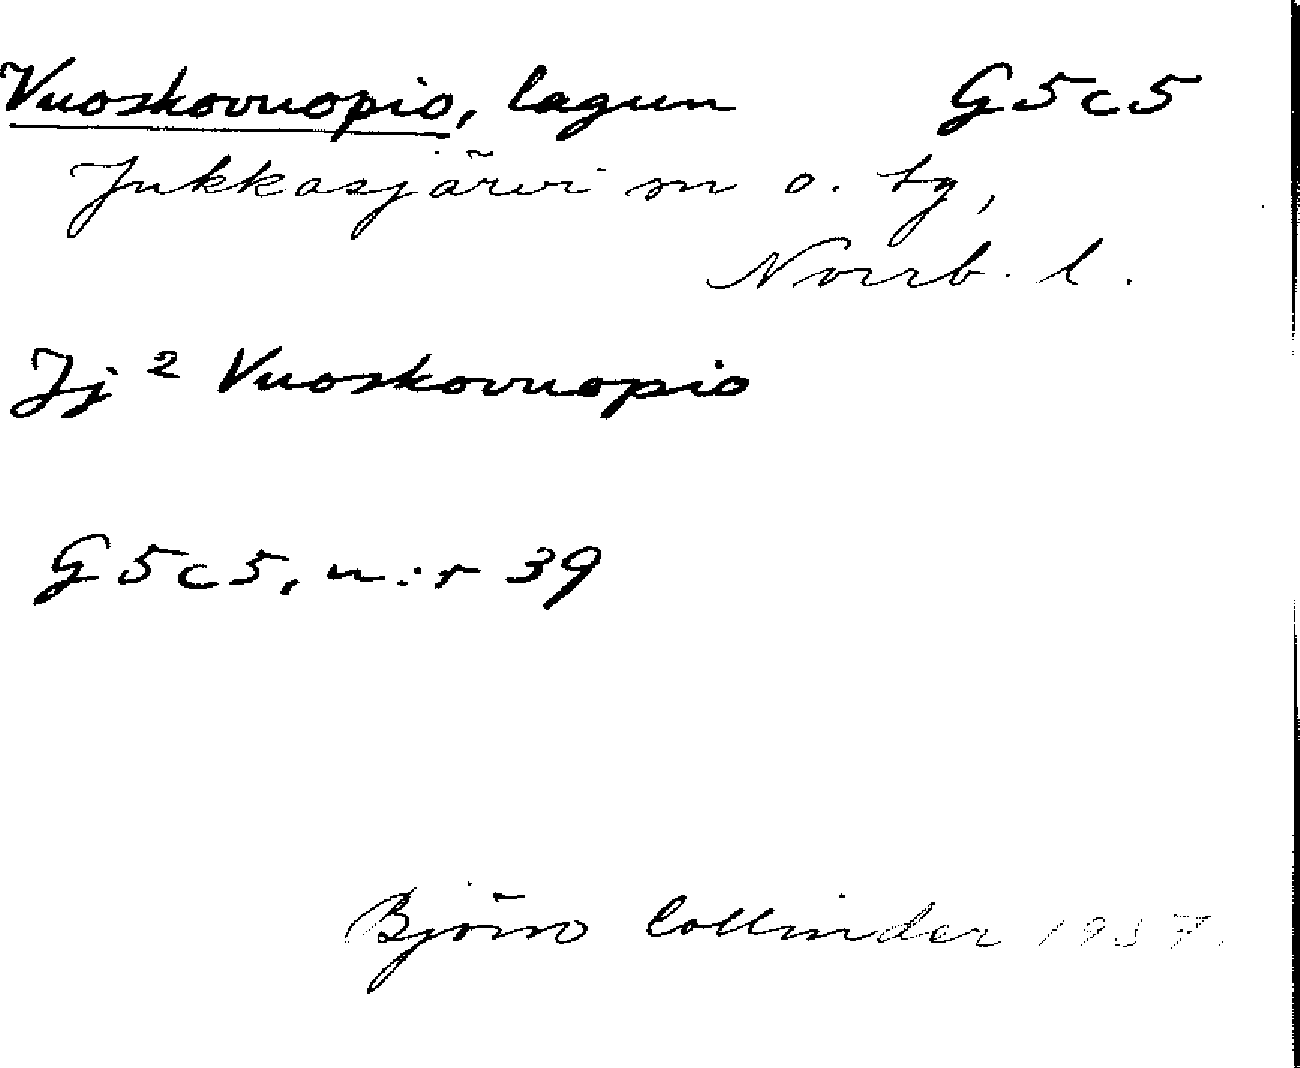 Vuoskovuopio, lagun G5c5
Jukkasjärvi sn o. tg,
Norrb. l.
Jj² Vuoskovuopio
G5c5, n:r 39
Björn Collinder 1937.